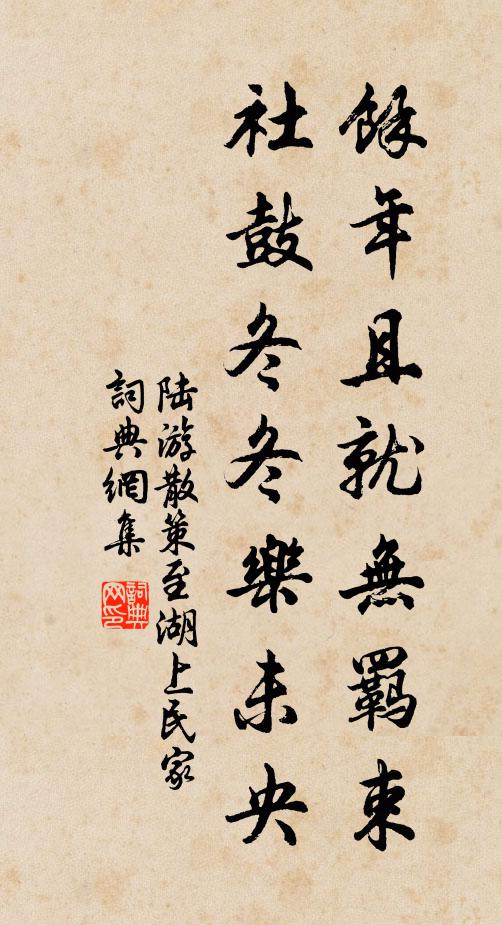 餘年且就無羈束
社鼓冬冬樂未央
陸游散策至湖上民家
詞典網集
詞典网印